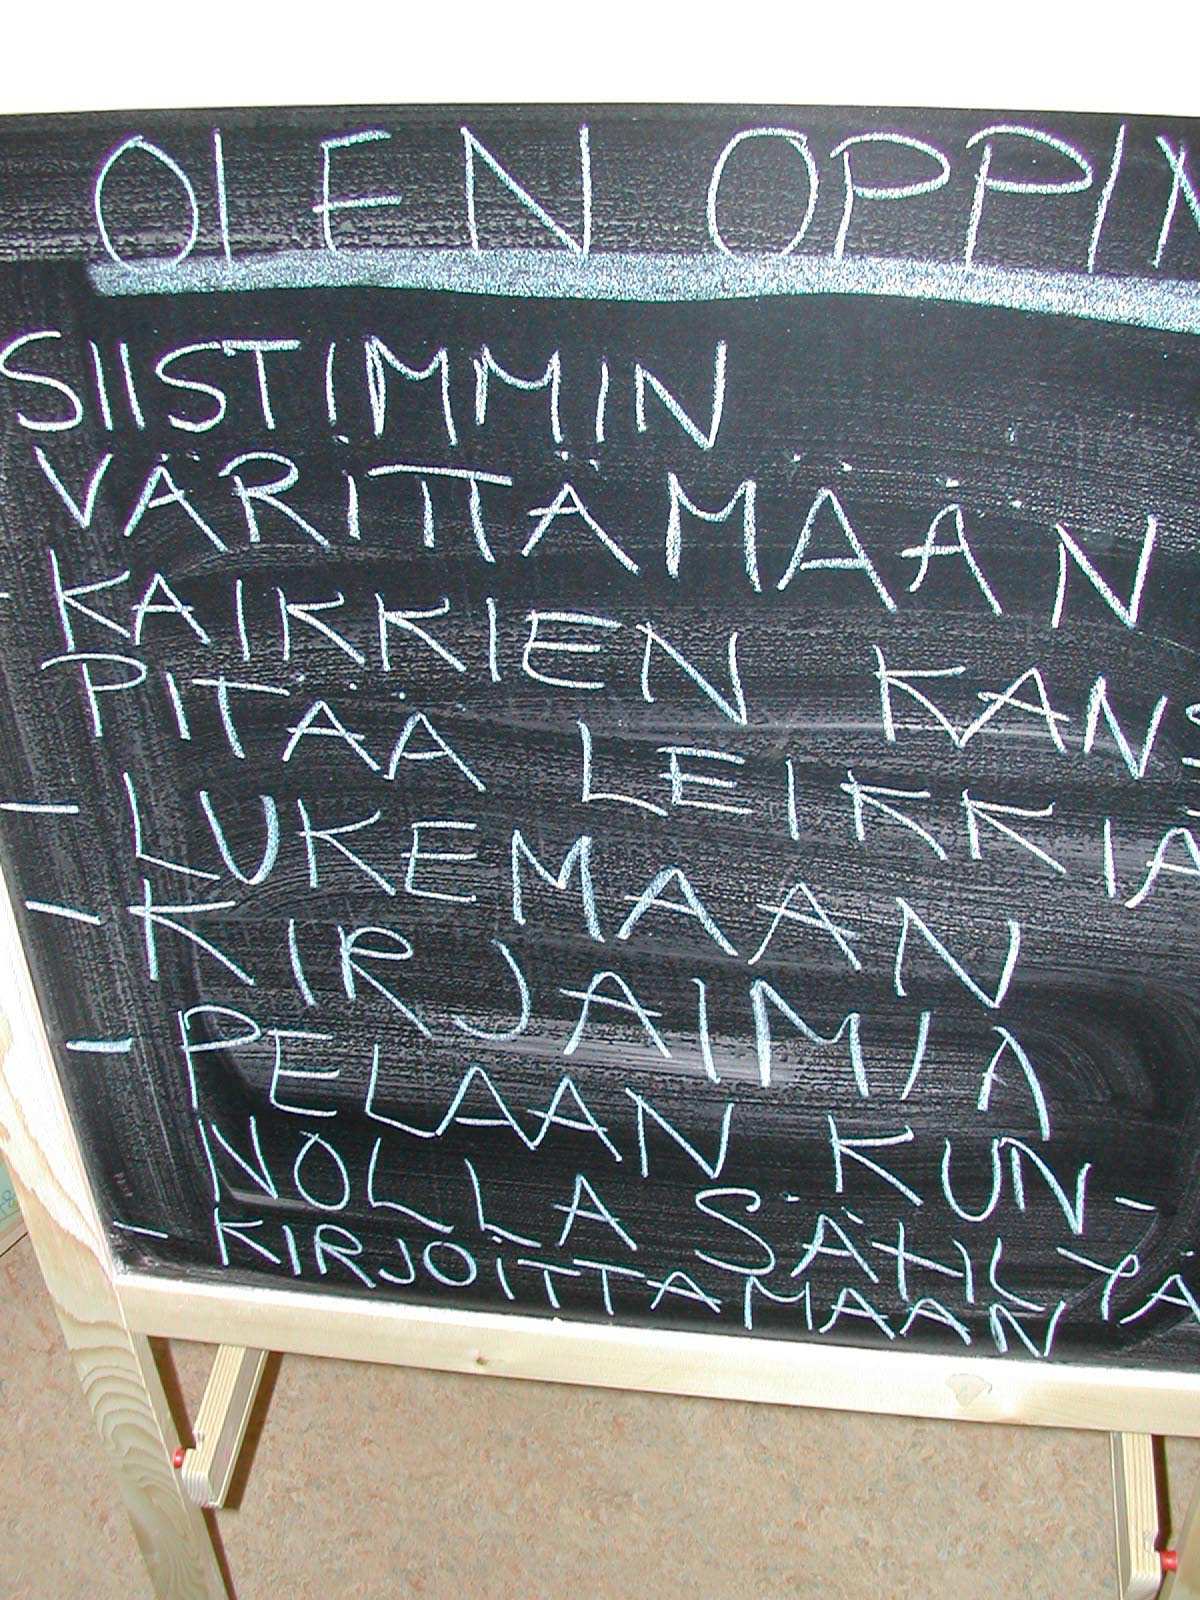 OLEN OPPIN
SIISTIMMIN
VÄRITTÄMÄÄN
- KAIKKIEN KANS
PITÄÄ LEIKKIÄ
- LUKEMAAN
- KIRJAIMIA
- PELAAN KUN-
NOLLA SÄHLYÄ
- KIRJOITTAMAAN